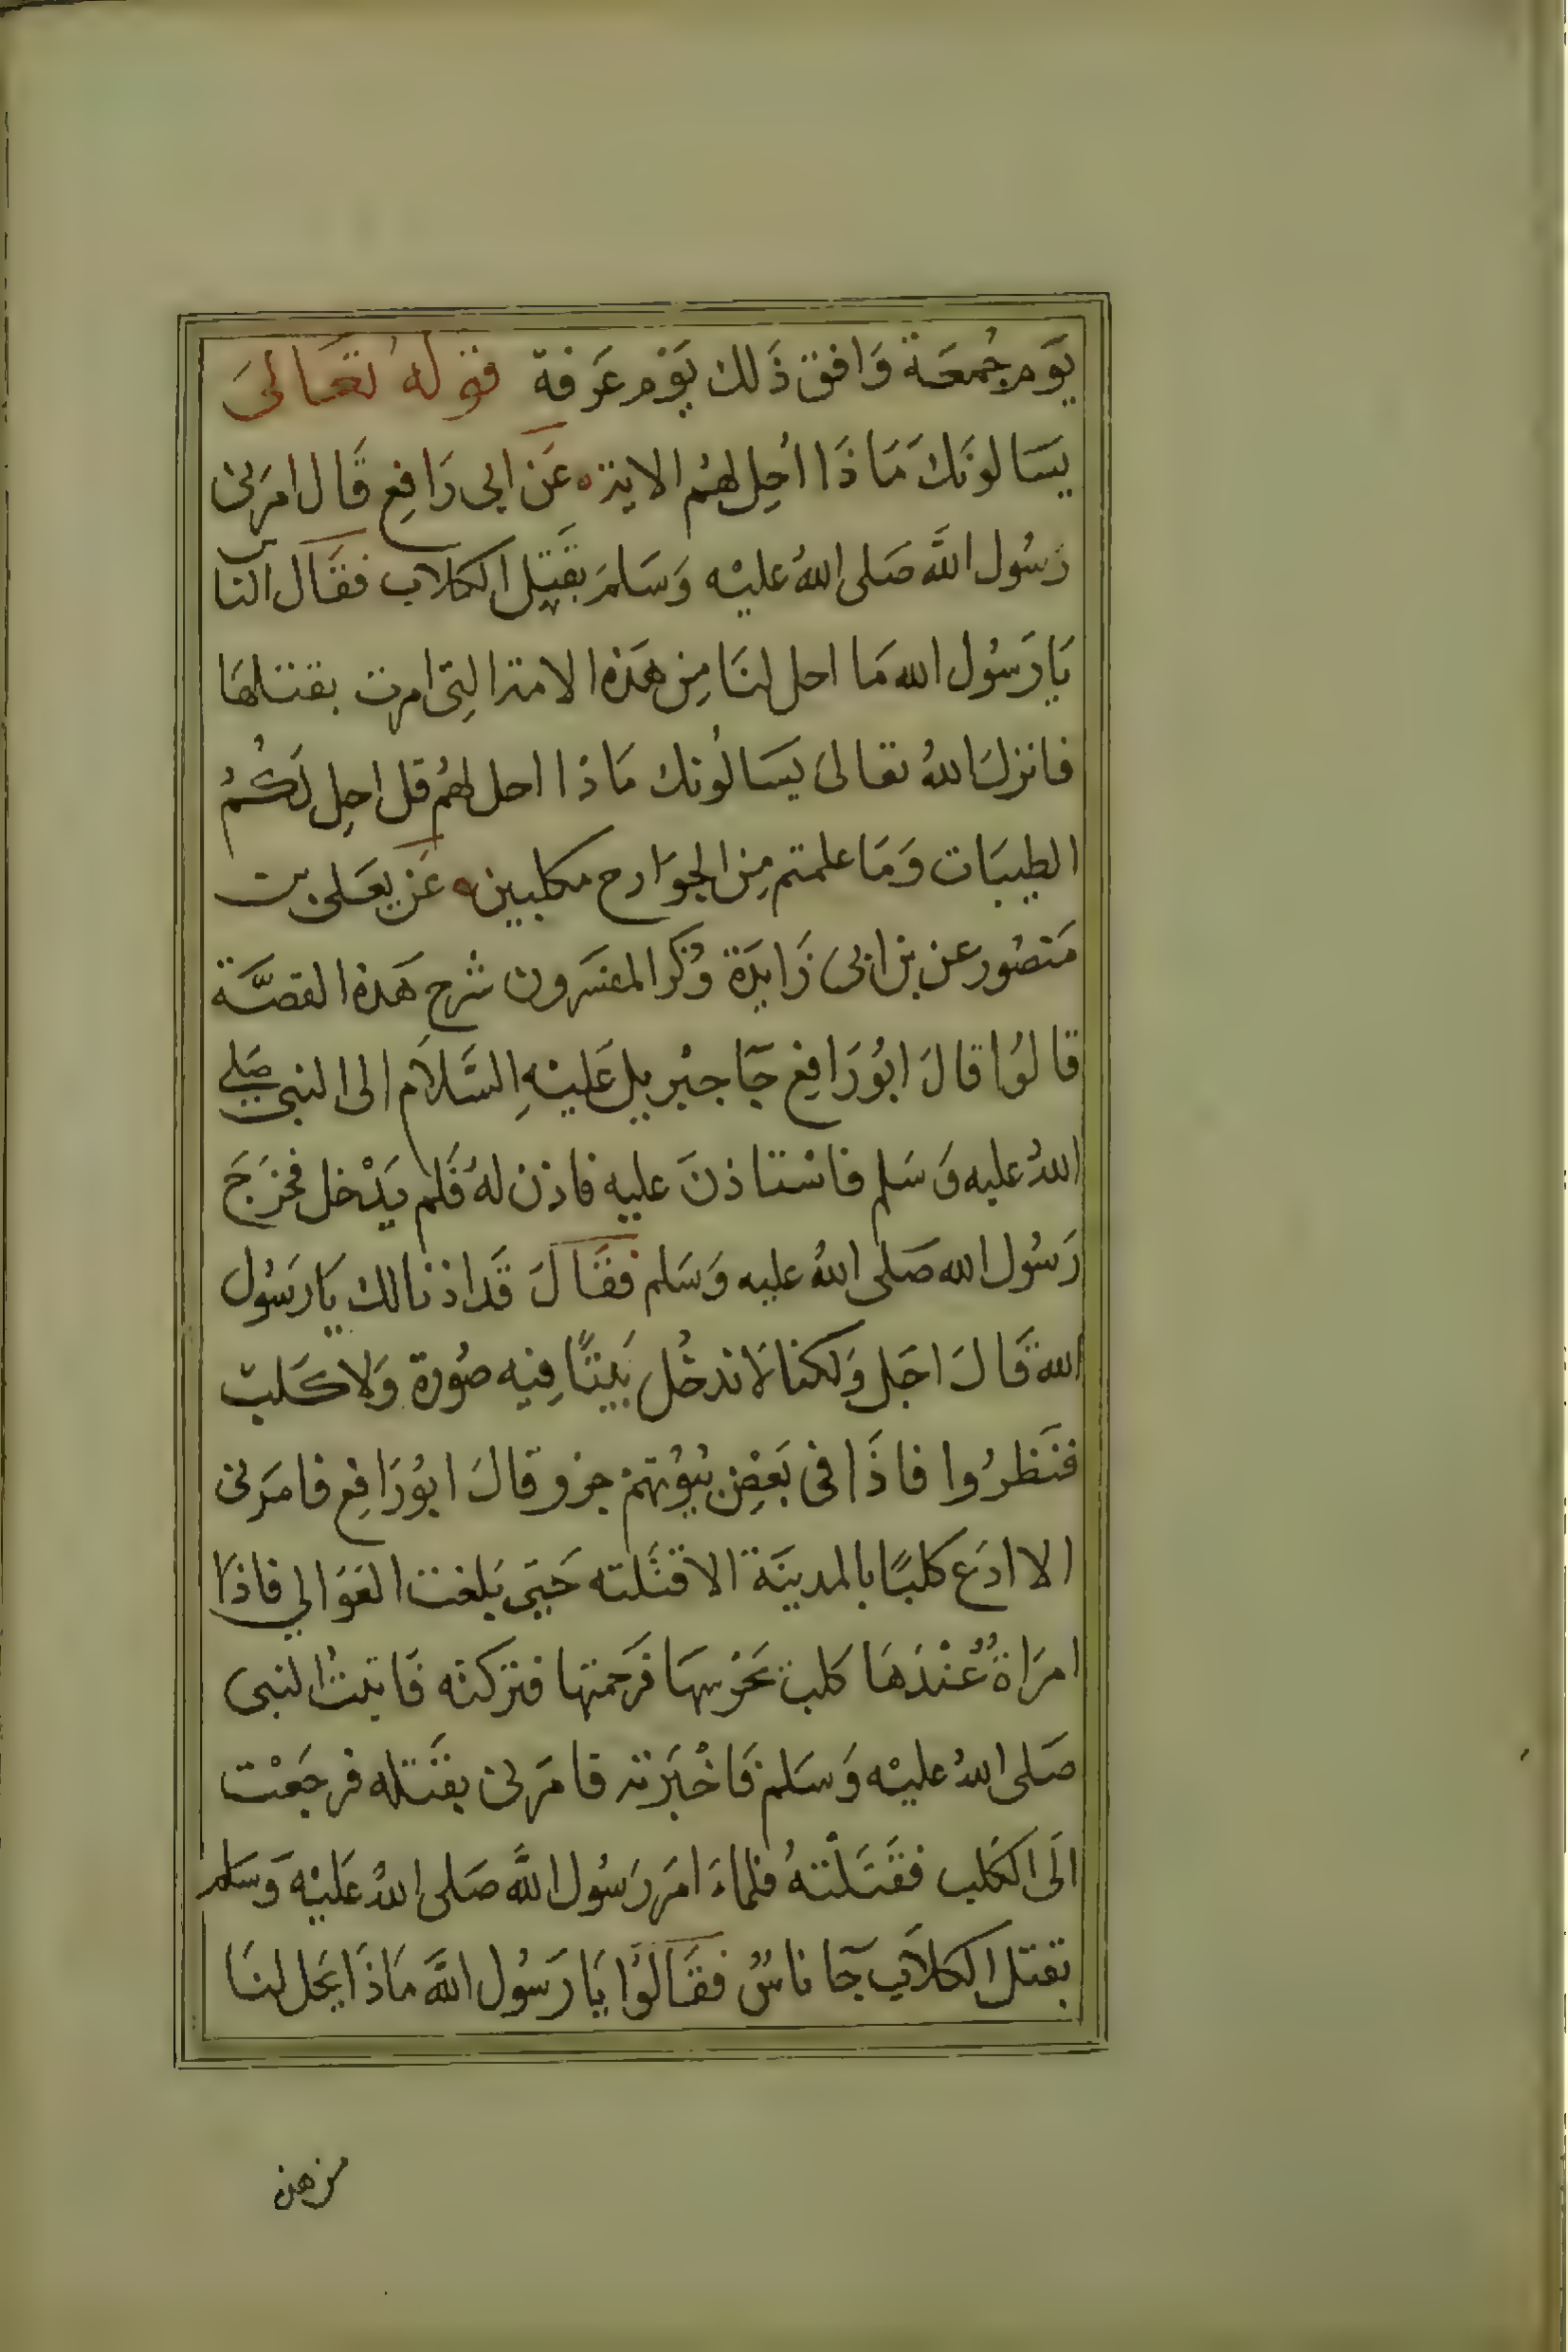 يَوم جُمعَة وَافق ذَلك يَوْم عَرفة قوله تعَالىَ
يسَالونَكَ مَاذَا اُحِل لهُم الاية عَن ابى رَافِع قَال امرَنى
رَسُول اللَّه صَلى اللهُ عليْه وَسَلمَ بقَتِل الكلاب فقَال الناس
يَا رَسُول الله مَا احل لنَا مِن هَذه الامة التِى امرت بقتلهَا
فانزلَ اللهُ تعالىَ يسَالُونك مَاذا احل لهُم قل احِل لَكُمُ
الطيبَات وَمَا علمتم مِن الجوَارح مكلبين عَن يعَلى بن
مَنصُور عن بن ابى زَايدَة وُذكر المفسَرون شَرح هَذه القصَّة
قالوُا قالَ ابُورَافِع جَآ جبْريل عَليْهِ السَّلاَم الى النبى صَلى
اللهُ عليه وَسَلم فاسْتاذنَ عليه فاذن لهُ فَلم يَدْخل فخَرَجَ
رَسُول الله صَلى اللهُ عليه وَسَلم فقَالَ قَد اذنا لك يَا رَسُول
الله قَالَ اجَل وَلكنا لاَ ندخُل بَيتًا فِيه صُورة وَلا كَلب
فنَظرُوا فاذَا فى بَعضِ بُيُوْتهمْ جرو قالَ ابُورَافِع فامَرنى
الا ادَع كلبًا بالمدينَة الا قتَلته حَتى بَلغت العَوَالي فاذَا
امرَاةٌ عُنْدَهَا كلب يحَرُسهَا فرَحمتها فتركته فَاتيتُ النبى
صَلى اللهُ عليْه وَسَلم فَاخْبَرته فامَرنى بقَتله فرجَعْت
الَى الكَلب فقَتَلْتهُ فلماءَ امَر رَسُول اللَّه صَلى اللهُ عَليْه وَسَلم
بقتل الكلاَب جَآ ناسٌ فقَالوُا يَا رَسُول اللَّه مَاذَا يَحل لنَا
من هذه